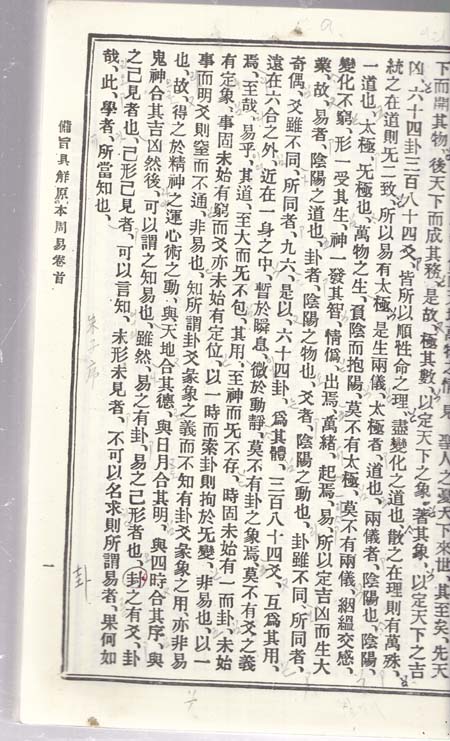 萬物之情、聖人之憂天下來世、其至矣、先天
下而開其物、後天下而成其務、是故、極其數、以定天下之象、著其象、以定天下之吉
凶、六十四卦三百八十四爻、皆所以順性命之理、盡變化之道也、散之在理則有萬殊、
統之在道則无二致、所以易有太極、是生兩儀、太極者、道也、兩儀者、陰陽也、陰陽、
一道也、太極、无極也、萬物之生、負陰而抱陽、莫不有太極、莫不有兩儀、絪縕交感、
變化不窮、形一受其生、神一發其智、情僞、出焉、萬緖、起焉、易、所以定吉凶而生大
業、故、易者、陰陽之道也、卦者、陰陽之物也、爻者、陰陽之動也、卦雖不同、所同者、
奇偶、爻雖不同、所同者、九六、是以、六十四卦、爲其體、三百八十四爻、互爲其用、
遠在六合之外、近在一身之中、暫於瞬息、微於動靜、莫不有卦之象焉、莫不有爻之義
焉、至哉、易乎、其道、至大而无不包、其用、至神而无不存、時固未始有一而卦、未始
有定象、事固未始有窮而爻亦未始有定位、以一時而索卦則拘於无變、非易也、以一
事而明爻則窒而不通、非易也、知所謂卦爻彖象之義而不知有卦爻彖象之用、亦非易
也、故、得之於精神之運心術之動、與天地合其德、與日月合其明、與四時合其序、與
鬼神合其吉凶然後、可以謂之知易也、雖然、易之有卦、易之已形者也、卦之有爻、卦
之已見者也、已形已見者、可以言知、未形未見者、不可以名求則所謂易者、果何如
哉、此、學者、所當知也、
朱子序
卦
備旨具解原本周易卷首
一